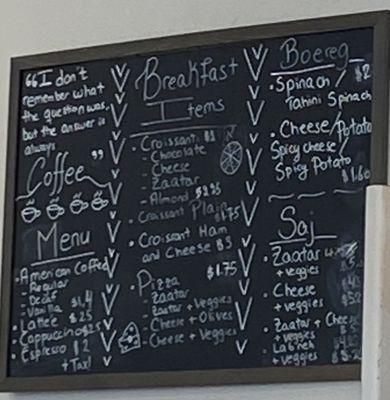 “I don't
remember what
the question was,
but the answer is
always
”
Coffee
Menu
• American Coffee
- Regular
- Decaf
- Vanilla $1.4
• Lattee $25
• Cappuccino $25
• Espresso $2
+ Tax!
Breakfast
Items
• Croissant: $3
- Chocolate
- Cheese
- Zaatar
- Almond $3.25
- Croissant Plain $1.75
• Croissant Ham
and Cheese $3
• Pizza $1.75
- Zaatar
- Zaatar + Veggies
- Cheese + Olives
- Cheese + Veggies
Boereg
• Spinach / $2
Tahini Spinach
• Cheese/Potato
Spicy cheese/
Spicy Potato
$1.60
Saj
• Zaatar
+ veggies
• Cheese
+ veggies
• Zaatar + Cheese
+ veggies
• Labneh
+ veggies